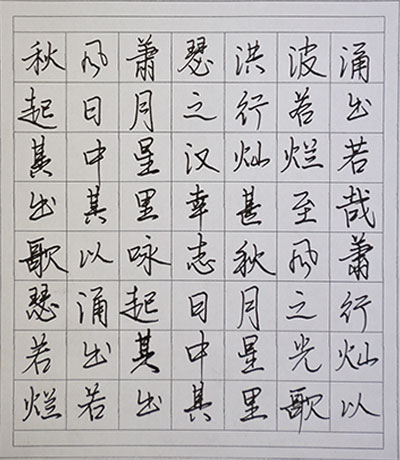 秋风萧瑟洪波涌
起日月之行若出
其中星汉灿烂若
出其里幸甚至哉
歌以咏志秋风萧
瑟涌起日月之行
若出其中星光灿
烂若出其里歌以